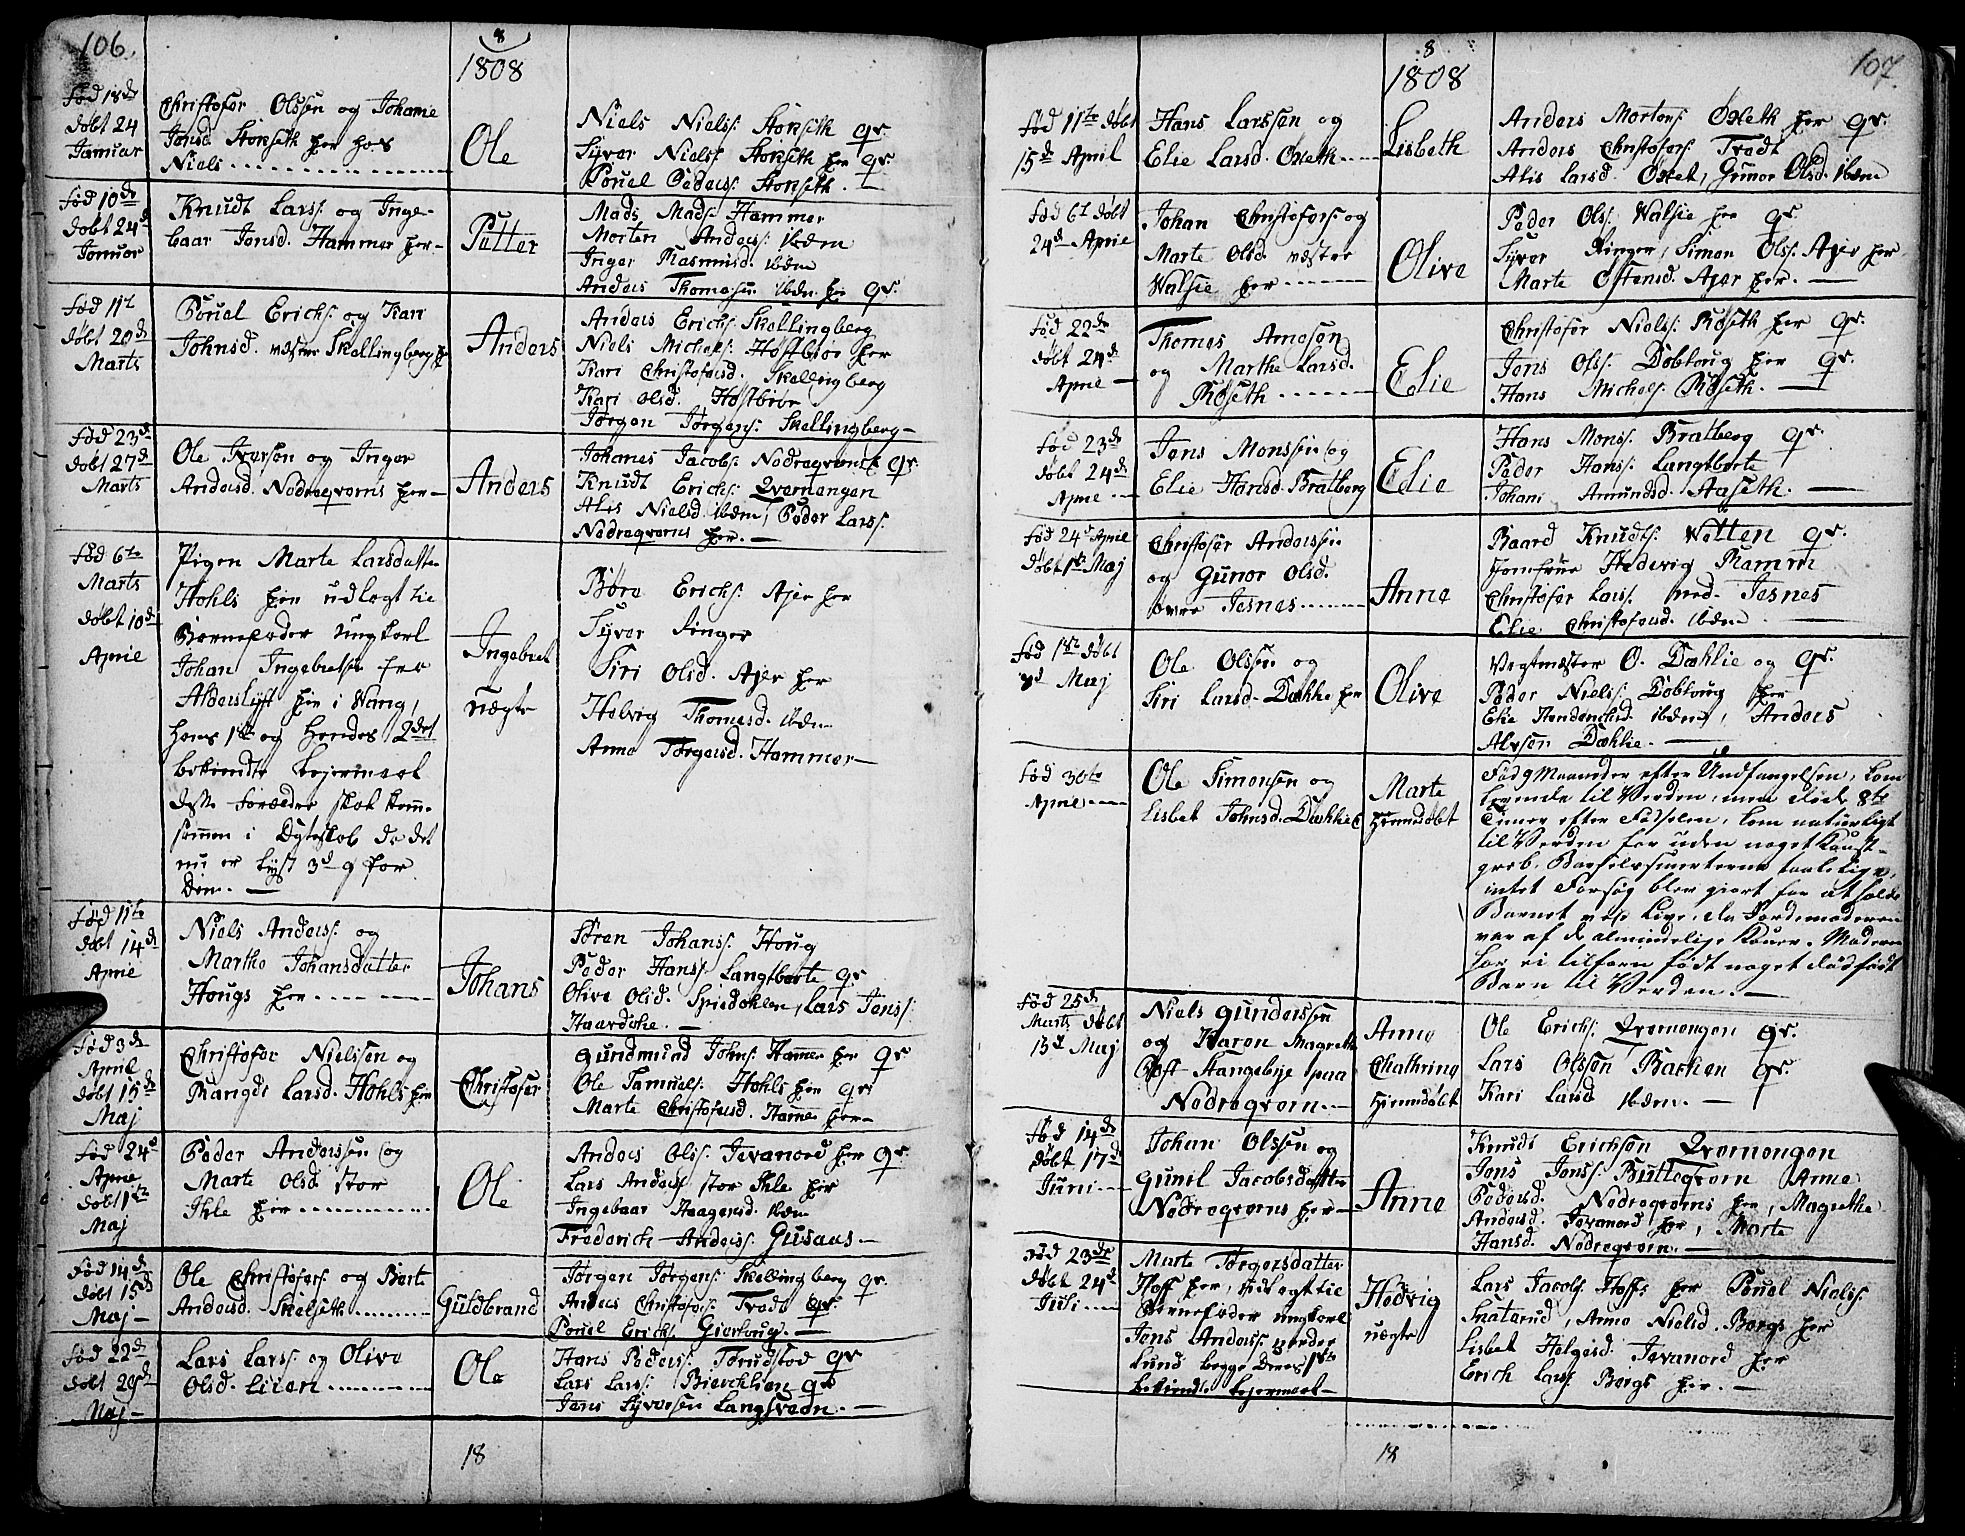 106.
8
1808
Fød 18de
døbt 24
Januar
Christofer Olssen og Johane
Jonsd. Stenseth her hos
Niels
Ole
Niels Nielss. Stenseth
Syver Nielss Stenseth her
Pouel Peders. Stenseth.
Fød 10de
døbt 24d
Januar
Knudt Larss. og Inge-
baar Jonsd. Hammer her
Petter
Mads Mads. Hammer
Morten Anders. ibdm
Inger Rasmusd. ibdm
Anders Thomesen ibdm her
Fød 11t
døbt 20d
Marts
Pouel Erichs. og Kari
Johnsd. vestre Skellingberg
Anders
Anders Erichs. Skellingberg
Niels Michels. Høstbiør her
Kari Christofersd. Skellingberg
Kari Olsd. Høstbiør
Jørgen Jørgens. Skellingberg
Fød 23d
døbt 27d
Marts
Ole Iversen og Inger
Andersd. Nedreqværns her
Anders
Johanes Jacobs. Nedreqværns
Knudt Erichs. Qvernengen
Alis Nielsd. ibdm, Peder Larss.
Nedreqværns her.
Fød 6te
Marts
døbt 10de
April
Pigen Marte Larsdatter
Hohls her udlagt til
Barnefader ungkarl
Johan Ingebretsen fra
Alderslyst her i Vang,
hans 1ste og hendes 2det
bekiendte Leiermaal
disse Forældre skal komme
sammen i Ægteskab da det
nu er lyst 3d g for
dem.
Ingebret
uægte
Børe Erichs. Ajer her
Syver Finger
Siri Olsd. Ajer her
Helvig Thomesd. ibdm
Anne Jørgensd. Hammer
Fød 11te
døbt 14d
April
Niels Anders. og
Marthe Johansdatter
Hougs her
Johans
Søren Johans. Houg
Peder Hans. Langtberte
Olive Olsd. Spiedohlen, Lars Jens.
Haardohe.
Fød 3de
April
døbt 15de
Maj
Christofer Nielssen og
Rangdi Larsd. Hohls her
Christofer
Gundmund Johns. Hamer her
Ole Samuels. Hohls her
Marte Christofersd. Hamer her
Fød 24d
April
døbt 1ste
Maj
Peder Anderssen og
Marte Olsd. Stor
Ihle her
Ole
Anders Olss. Jevanord her
Lars Anders. Stor Ihle her
Ingebaar Haagensd. ibdm
Frederich Anders. Gusaas.
Fød 14de
døbt 15de
Maj
Ole Christofers. og Berte
Andersd. Skelseth
Guldbrand
Jørgen Jørgens. Skellingberg
Anders Christofers. Trodt
Pouel Erichs. Gierloug.
Fød 22de
døbt 29de
Maj
Lars Larss. og Olive
Olsd. Lilen
Ole
Hans Peders. Torudstad
Lars Larss. Bierchlien
Jens Syversen Langsveen.
18
107.
8
1808
Fød 11te døbt
15de April
Hans Larssen og
Elie Larsd. Oxeth
Lisbeth
Anders Mortens. Oxeth her
Anders Christofers. Trodt
Alis Larsd. Oxet, Gunor Olsd. ibdm
Fød 6t døbt
24d April
Johan Christofers og
Marte Olsd. vestre
Walsie her
Olive
Peder Olss. Walsie her
Syver Finger, Simen Olss. Ajer her
Marte Østensd. Ajer her.
Fød 22de
døbt 24de
April
Thomes Arnesen
og Marthe Larsd.
Røseth
Elie
Christofer Nielss. Røseth her
Jens Olss. Dobloug her
Hans Michels. Røseth.
Fød 23de
døbt 24de
April
Jens Monssen og
Elie Hansd. Bratberg
Elie
Hans Monss. Bratberg
Peder Hanss. Langtberte
Johane Amundsd. Aaseth.
Fød 24d April
Døbt 1ste Maj
Christofer Anderssen
og Gunor Olsd.
øvre Jesnes
Anne
Baard Knudts. Wetten
Jomfrue Hedevig Ramm
Christofer Larss. ned. Jesnes
Elie Christofersd. ibdm.
Fød 1ste døbt
8d Maj
Ole Olssen og
Siri Larsd. Dæhlie her
Olive
Vegtmester O. Dæhlie og
Peder Nielss. Dobloug her
Elie Hendrichsd. ibdm, Anders
Alvsen Dæhlie.
Fød 30te
April
Ole Simensen og
Lisbet Johnsd. Dæhlie
Marte
hiemmdøbt
Fød 9 Maaneder efter Undfangelsen, kom
levende til Verden, men døde 8te
Timer efter Fødselen, kom naturligt
til Verden for uden noget Kunst-
greb. Barselsmerterne taalelige,
intet Forsøg blev giort for at holde
Barnet ved Live, da Jordemoderen
var af de almindelige Koner. Moderen
har ei tilforn født noget dødfødt
Barn til Verden.
Fød 25de
Marts døbt
15d Maj
Niels Gunderssen
og Karen Magrethe
Opst Stangebye paa
Nedreqvern.
Anne
Chathrina
hiemmdøbt
Ole Erichs. Qvernengen
Lars Olssen Bachen
Kari Larsd. ibdm.
Fød 14de
døbt 17d
Juni
Johan Olssen og
Gunil Jacobsdatter
Nedreqværns her
Anne
Knudt Erichsen Qvernengen
Jens Jenss. Butteqvern Anne
Pedersd. Nedreqværns her, Magrethe
Andersd. Jevanord her, Marte
Hansd. Nedreqvern.
Fød 23de
døbt 24d
Juli
Marte Jørgensdatter
Hoff her, udlagt til
Barnefader ungkarl
Jens Anders. verdes
Lund begge Deres 1ste
bekiendte Lejermaal
Hedvig
uægte
Lars Jacobs. Hoffs her Pouel Nielss.
Snaterud, Anne Nielsd. Bergs her
Lisbet Helgesd. Jevanord her
Erich Larss. Bergs her.
18